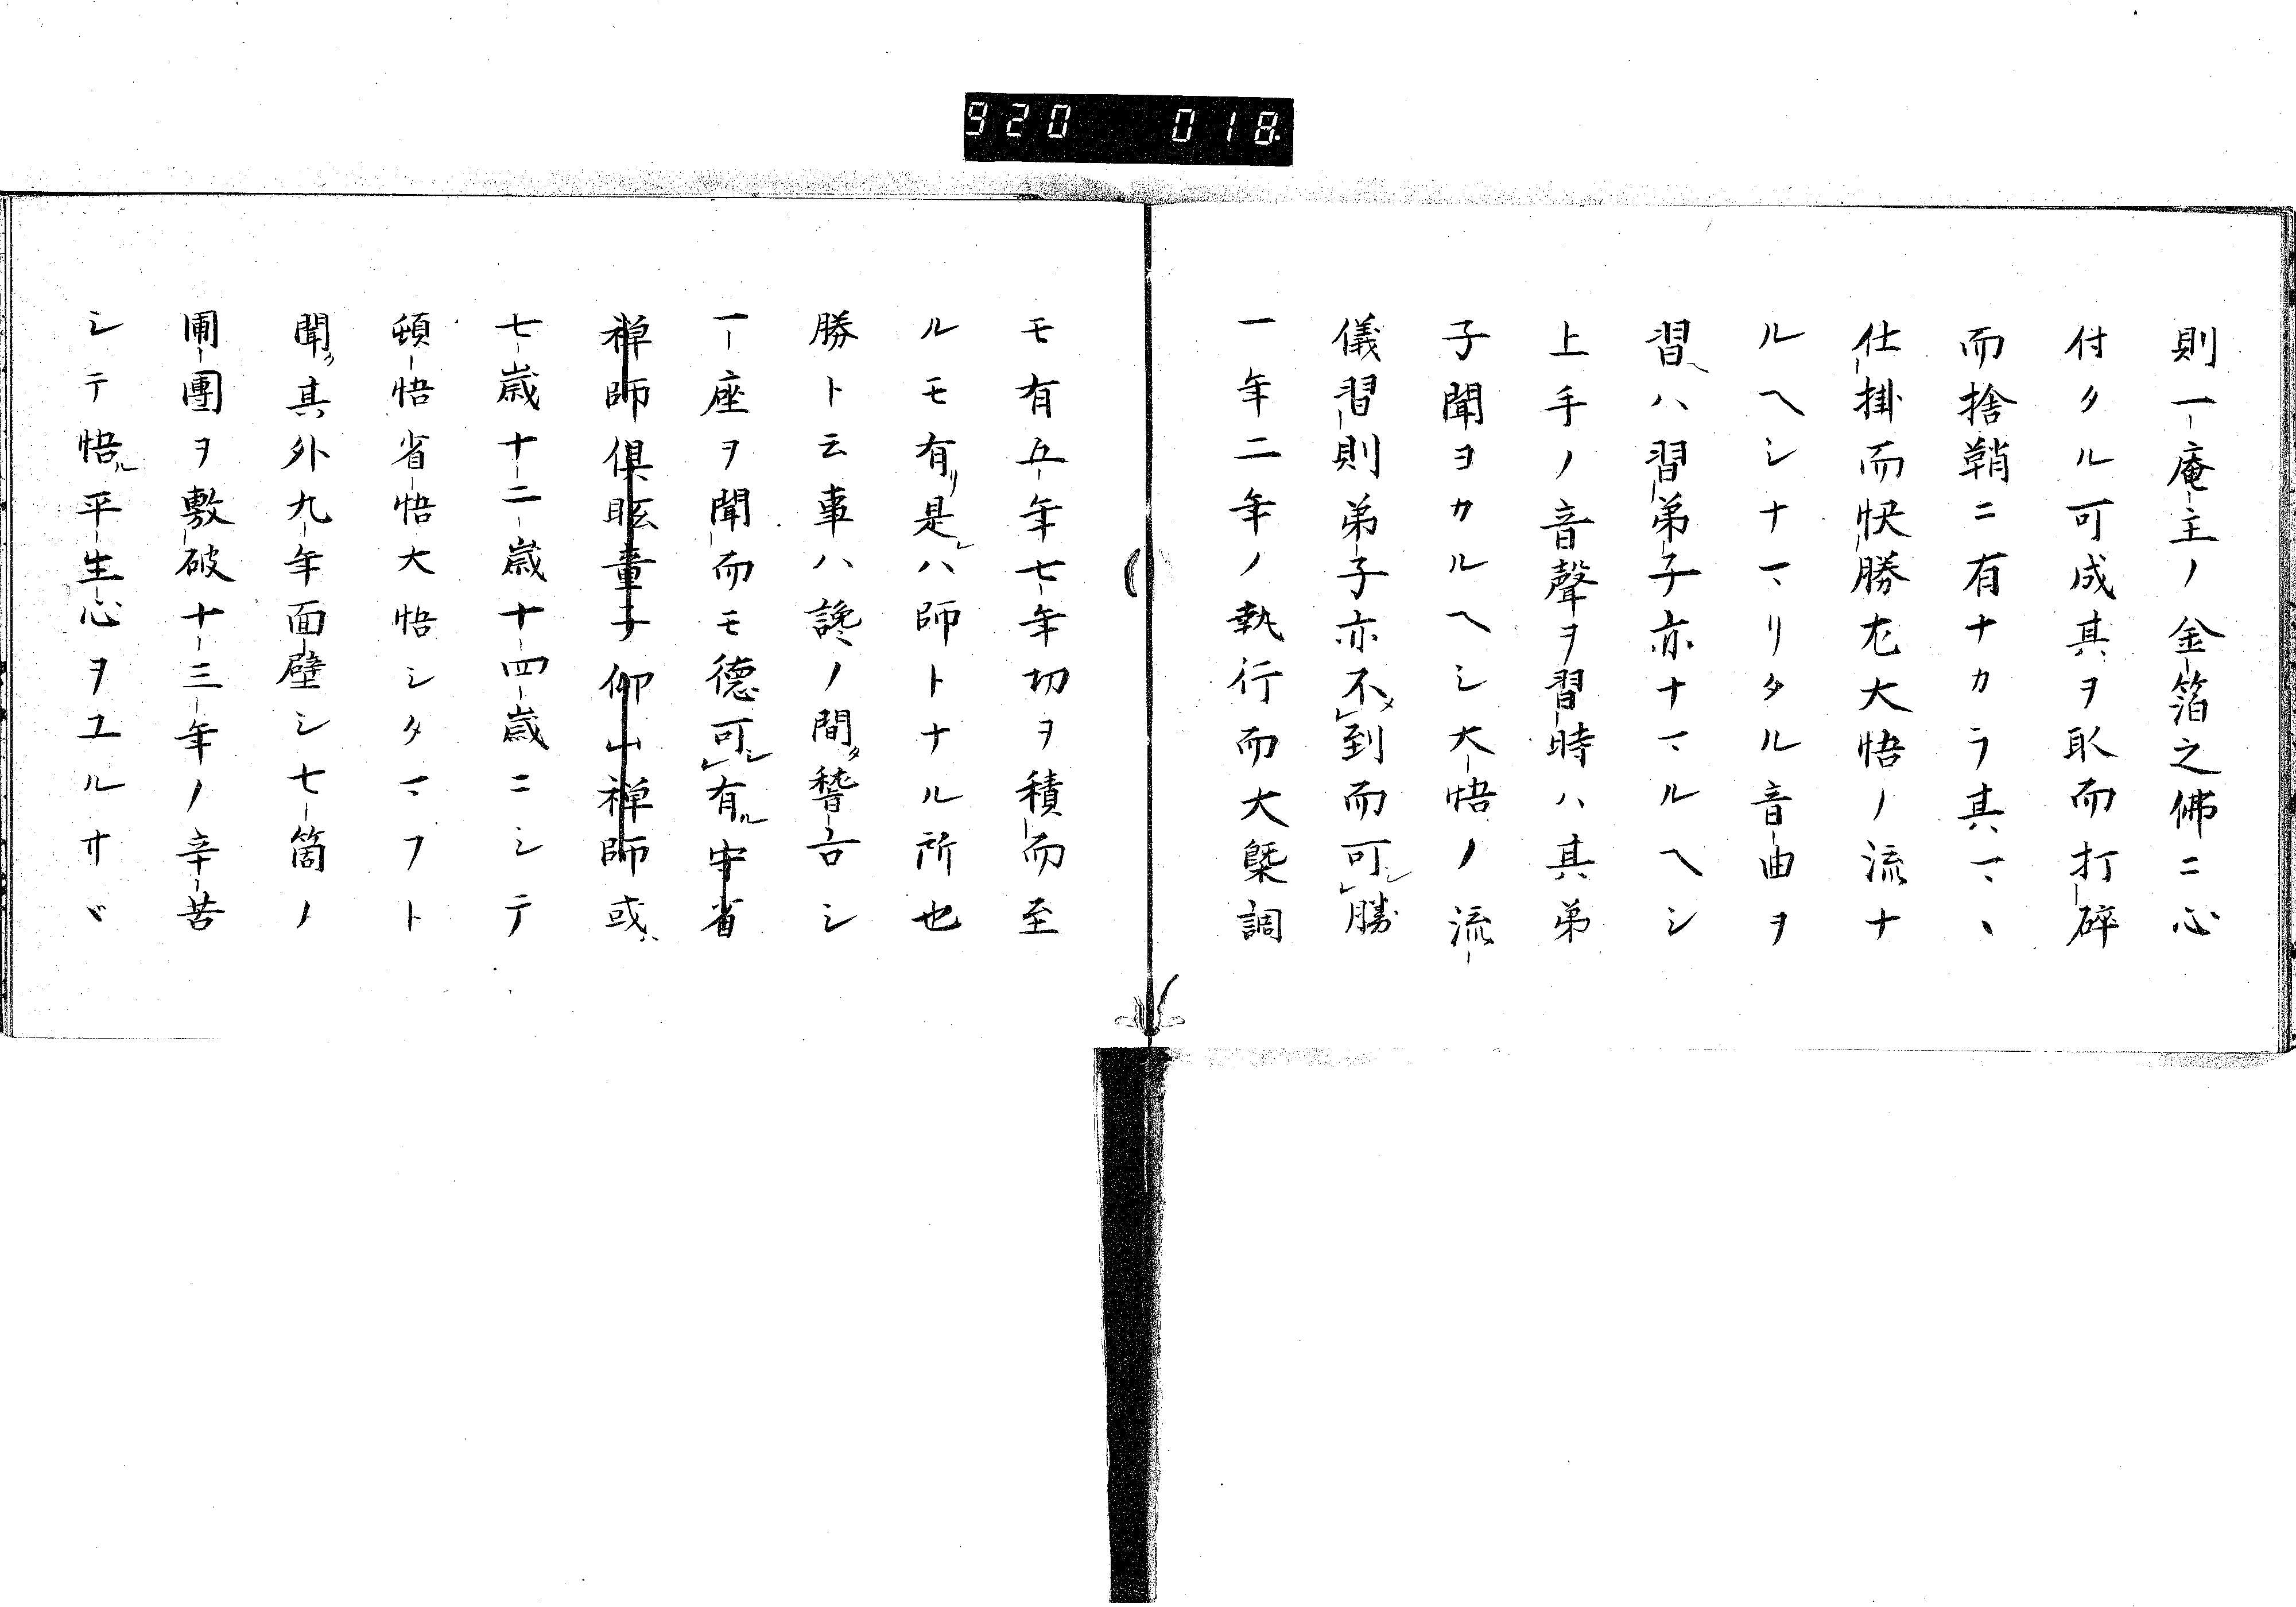 920 018
則一庵主ノ金箔之佛ニ心
付タル可成其ヲ取而打碎
而捨鞘ニ有ナカラ其マヽ
仕掛而快勝尤大悟ノ流ナ
ルヘシナマリタル音曲ヲ
習ハ習弟子亦ナマルヘシ
上手ノ音聲ヲ習時ハ其弟
子聞ヨカルヘシ大悟ノ流
儀習則弟子亦不到而可勝
一年二年ノ執行而大槩調
モ有五年七年切ヲ積而至
ルモ有リ是レハ師トナル所也
勝ト云事ハ讒ノ間タ稽古シ
一座ヲ聞而モ德可シ有ル守省
禅師俱眩童子仰山禅師或ハ
七歳十二歳十四歳ニシテ
頓悟省悟大悟シタマフト
聞ク其外九年面壁シ七箇ノ
團ヲ敷破十三年ノ辛苦
シテ悟ル平生心ヲユルサヾ